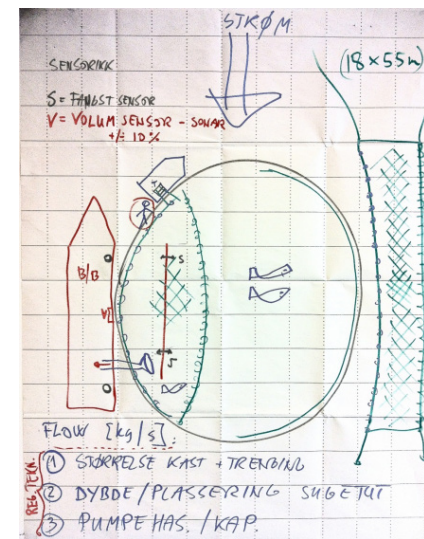 STRØM
(18x55m)
SENSORIKK
S = FANGST SENSOR
V = VOLUM SENSOR - SONAR
+/- 10%
B/B
S
V
S
FLOW [kg/s]:
REG.TEKN.
① STØRRELSE KAST + TRENGING
② DYBDE/PLASSERING SUGETUT
③ PUMPE HAS. / KAP.